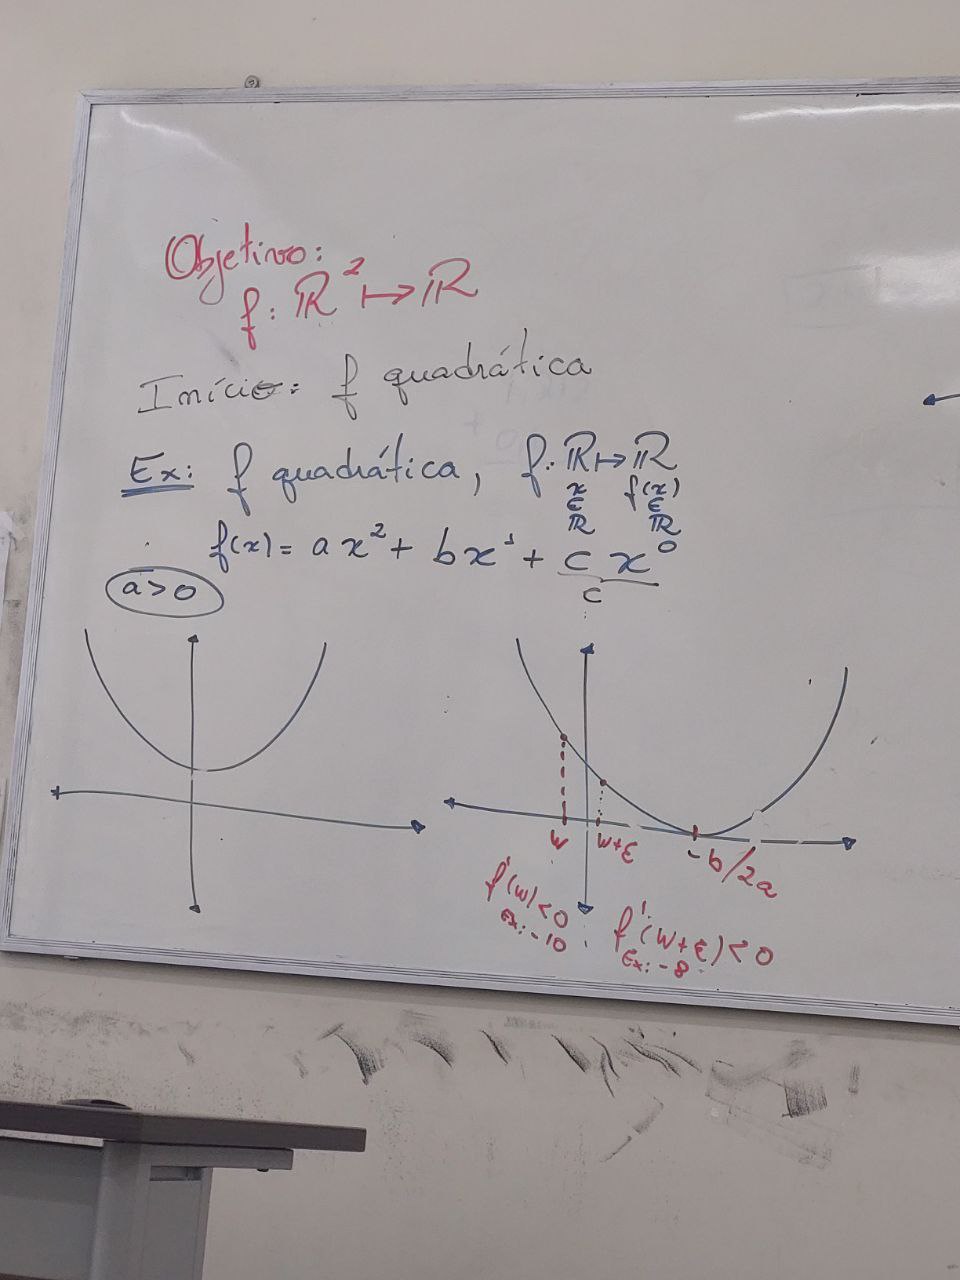 Objetivo:
f: ℝ² ↦ ℝ
Início: f quadrática
Ex: f quadrática, f: ℝ ↦ ℝ
x f(x)
∈ ∈
ℝ ℝ
f(x) = ax² + bx¹ + cx⁰
c
a > 0
w w+ε -b/2a
f'(w) < 0
Ex: -10
f'(w+ε) < 0
Ex: -8